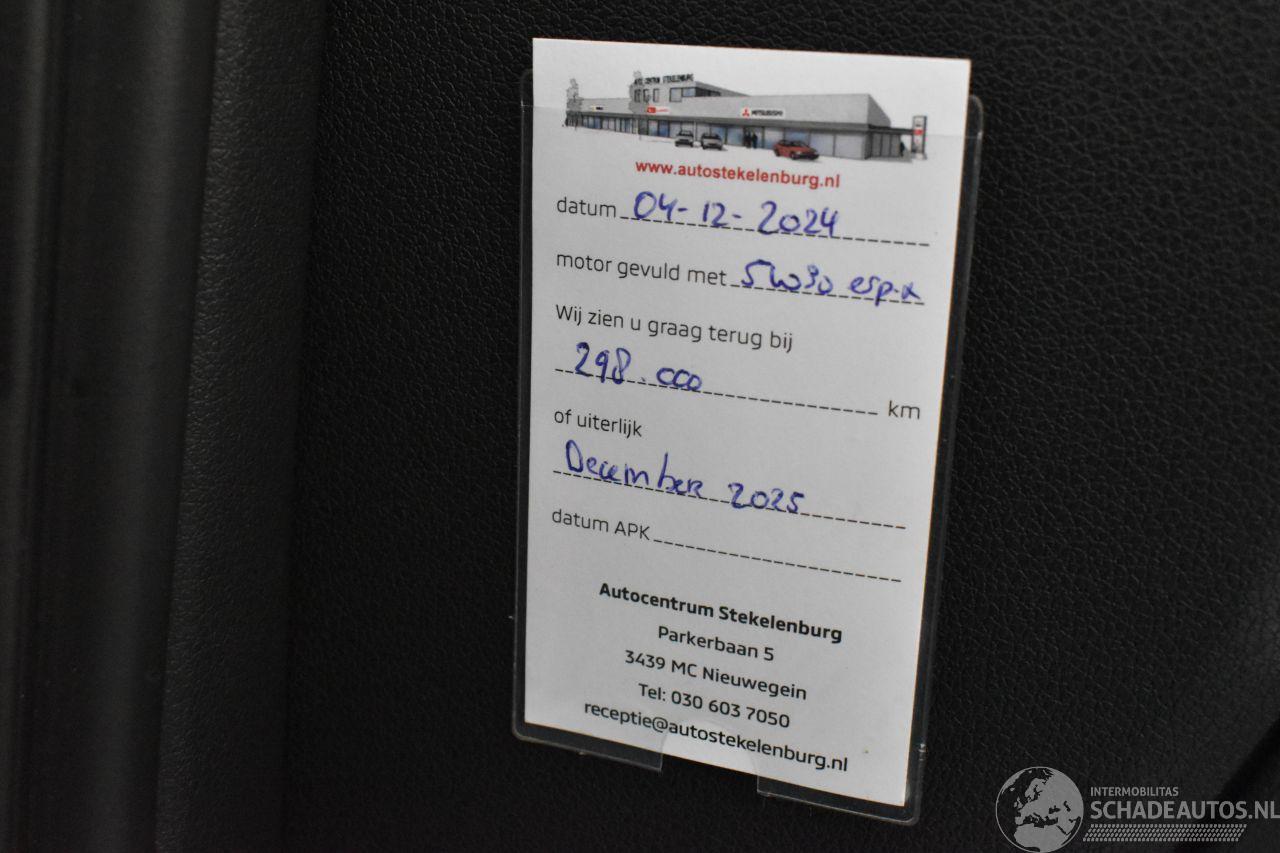 AUTO CENTRUM STEKELENBURG
MITSUBISHI
www.autostekelenburg.nl
datum 04-12-2024
motor gevuld met 5W30 esp-x
Wij zien u graag terug bij
298.000 km
of uiterlijk
December 2025
datum APK
Autocentrum Stekelenburg
Parkerbaan 5
3439 MC Nieuwegein
Tel: 030 603 7050
receptie@autostekelenburg.nl
INTERMOBILITAS
SCHADEAUTOS.NL